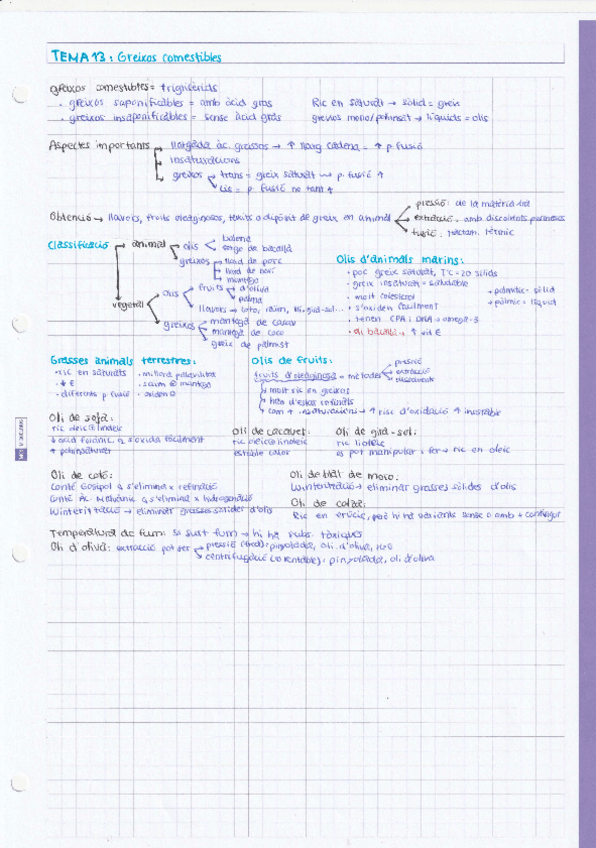 TEMA 13: Greixos comestibles
greixos comestibles = triglicèrids
· greixos saponificables = amb àcid gras
Ric en saturat → sòlid = greix
· greixos insaponificables = sense àcid gras
greixos mono/poliinsat → líquids = olis
Aspectes importants
llargada àc. grassos → ↑ llarg cadena = ↑ p. fusió
insaturacions
greixos
trans = greix saturat → p. fusió ↑
cis = p. fusió no tant ↑
Obtenció → llavors, fruits oleaginosos, teixits adipòsit de greix en animal
pressió: de la matèria
extracció: amb dissolvents
fusió: tractam. tèrmic
Classificació
animal
olis
balena
fetge de bacallà
greixos
llard de porc
llard de boví
mantega
vegetal
olis
fruits
d'oliva
palma
llavors → coto, raïm, gira-sol...
greixos
mantega de cacau
mantega de coco
greix de palmist
Olis d'animals marins:
· poc greix saturat, Tª C = 20 sòlids
· greix insaturat = saludable
· molt colesterol
· s'oxiden fàcilment
· tenen EPA i DHA → omega-3
· oli balena → ↑ vit E
→ palmític = sòlid
→ palmíc = líquid
Grasses animals terrestres:
· ric en saturats
· millora palatabilitat
· ↓ E
· sèum @ mantega
· diferents p fusió
· oxiden
Olis de fruits:
fruits d'oleaginosa → mètodes
pressió
extracció
dissolvents
molt ric en greixos
han d'estar refinats
com + insaturacions → ↑ risc d'oxidació ↑ inestable
Oli de soja:
ric oleic linoleic
↓ àcid
s'oxida fàcilment
↑ poliinsaturat
Oli de cacauet:
ric oleic linoleic
estable calor
Oli de gira-sol:
ric linoleic
es pot manipular i fer → ric en oleic
Oli de cotó:
Conté Gosipol q s'elimina x refinació
Conté Àc. Malvànic q s'elimina x hidrogenació
Winterització → eliminar grasses sòlides d'olis
Oli de blat de moro:
Winterització → eliminar grasses sòlides d'olis
Oli de colza:
Ric en erúcic, però hi ha variants sense o amb ↓ contingut
Temperatura de fum: Si surt fum → hi ha subs. tòxiques
Oli d'oliva: extracció pot ser
pressió (trad): pinyolada, oli d'oliva, H2O
centrifugació (+ rentable): pinyolada, oli d'oliva